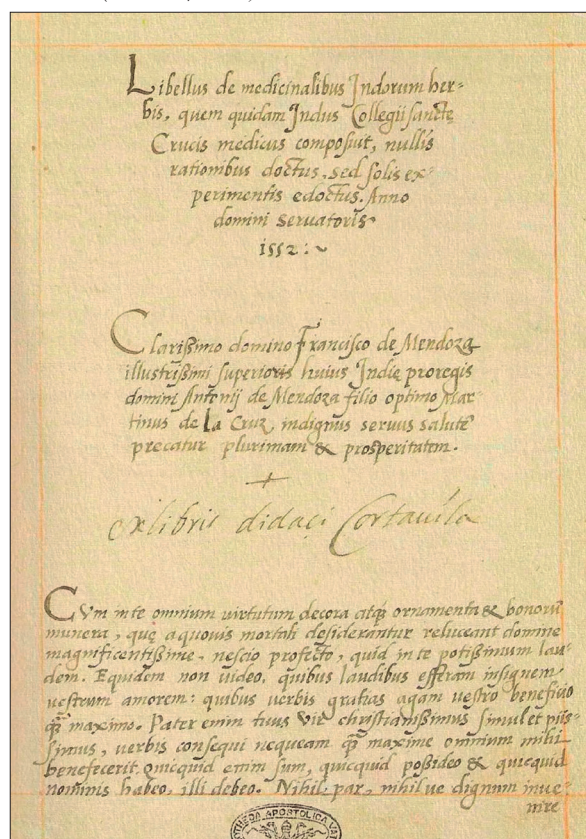 Libellus de medicinalibus Indorum her-
bis, quem quidam Indus Collegii sancte
Crucis medicus composuit, nullis
rationibus doctus, sed solis ex-
perimentis edoctus. Anno
domini servatoris
1552:~
Clarissimo domino Francisco de Mendoza
illustrissimi superioris huius Indię proregis
domini Antonij de Mendoza filio optimo Mar-
tinus de La Cruz indignus servus salutē
precatur plurimam & prosperitatem.
+
ex libris didaci Cortavila
CVm in te omnium virtutum decora atq; ornamenta & bonorū
munera, quę a quovis mortali desiderantur reluceant domine
magnificentissime. nescio profecto, quid in te potissimum lau-
dem. Equidem non video, quibus laudibus efferam insignem
vestrum amorem: quibus verbis gratias agam vestro beneficio
q̃ maximo. Pater enim tuus Vir christianissimus simul et piis-
simus, verbis consequi nequeam q̃ maxime omnium mihi
benefecerit. quicquid enim sum, quicquid possideo & quicquid
nominis habeo, illi debeo. Nihil par, nihil ve dignum inve-
nire
APOSTOLICA